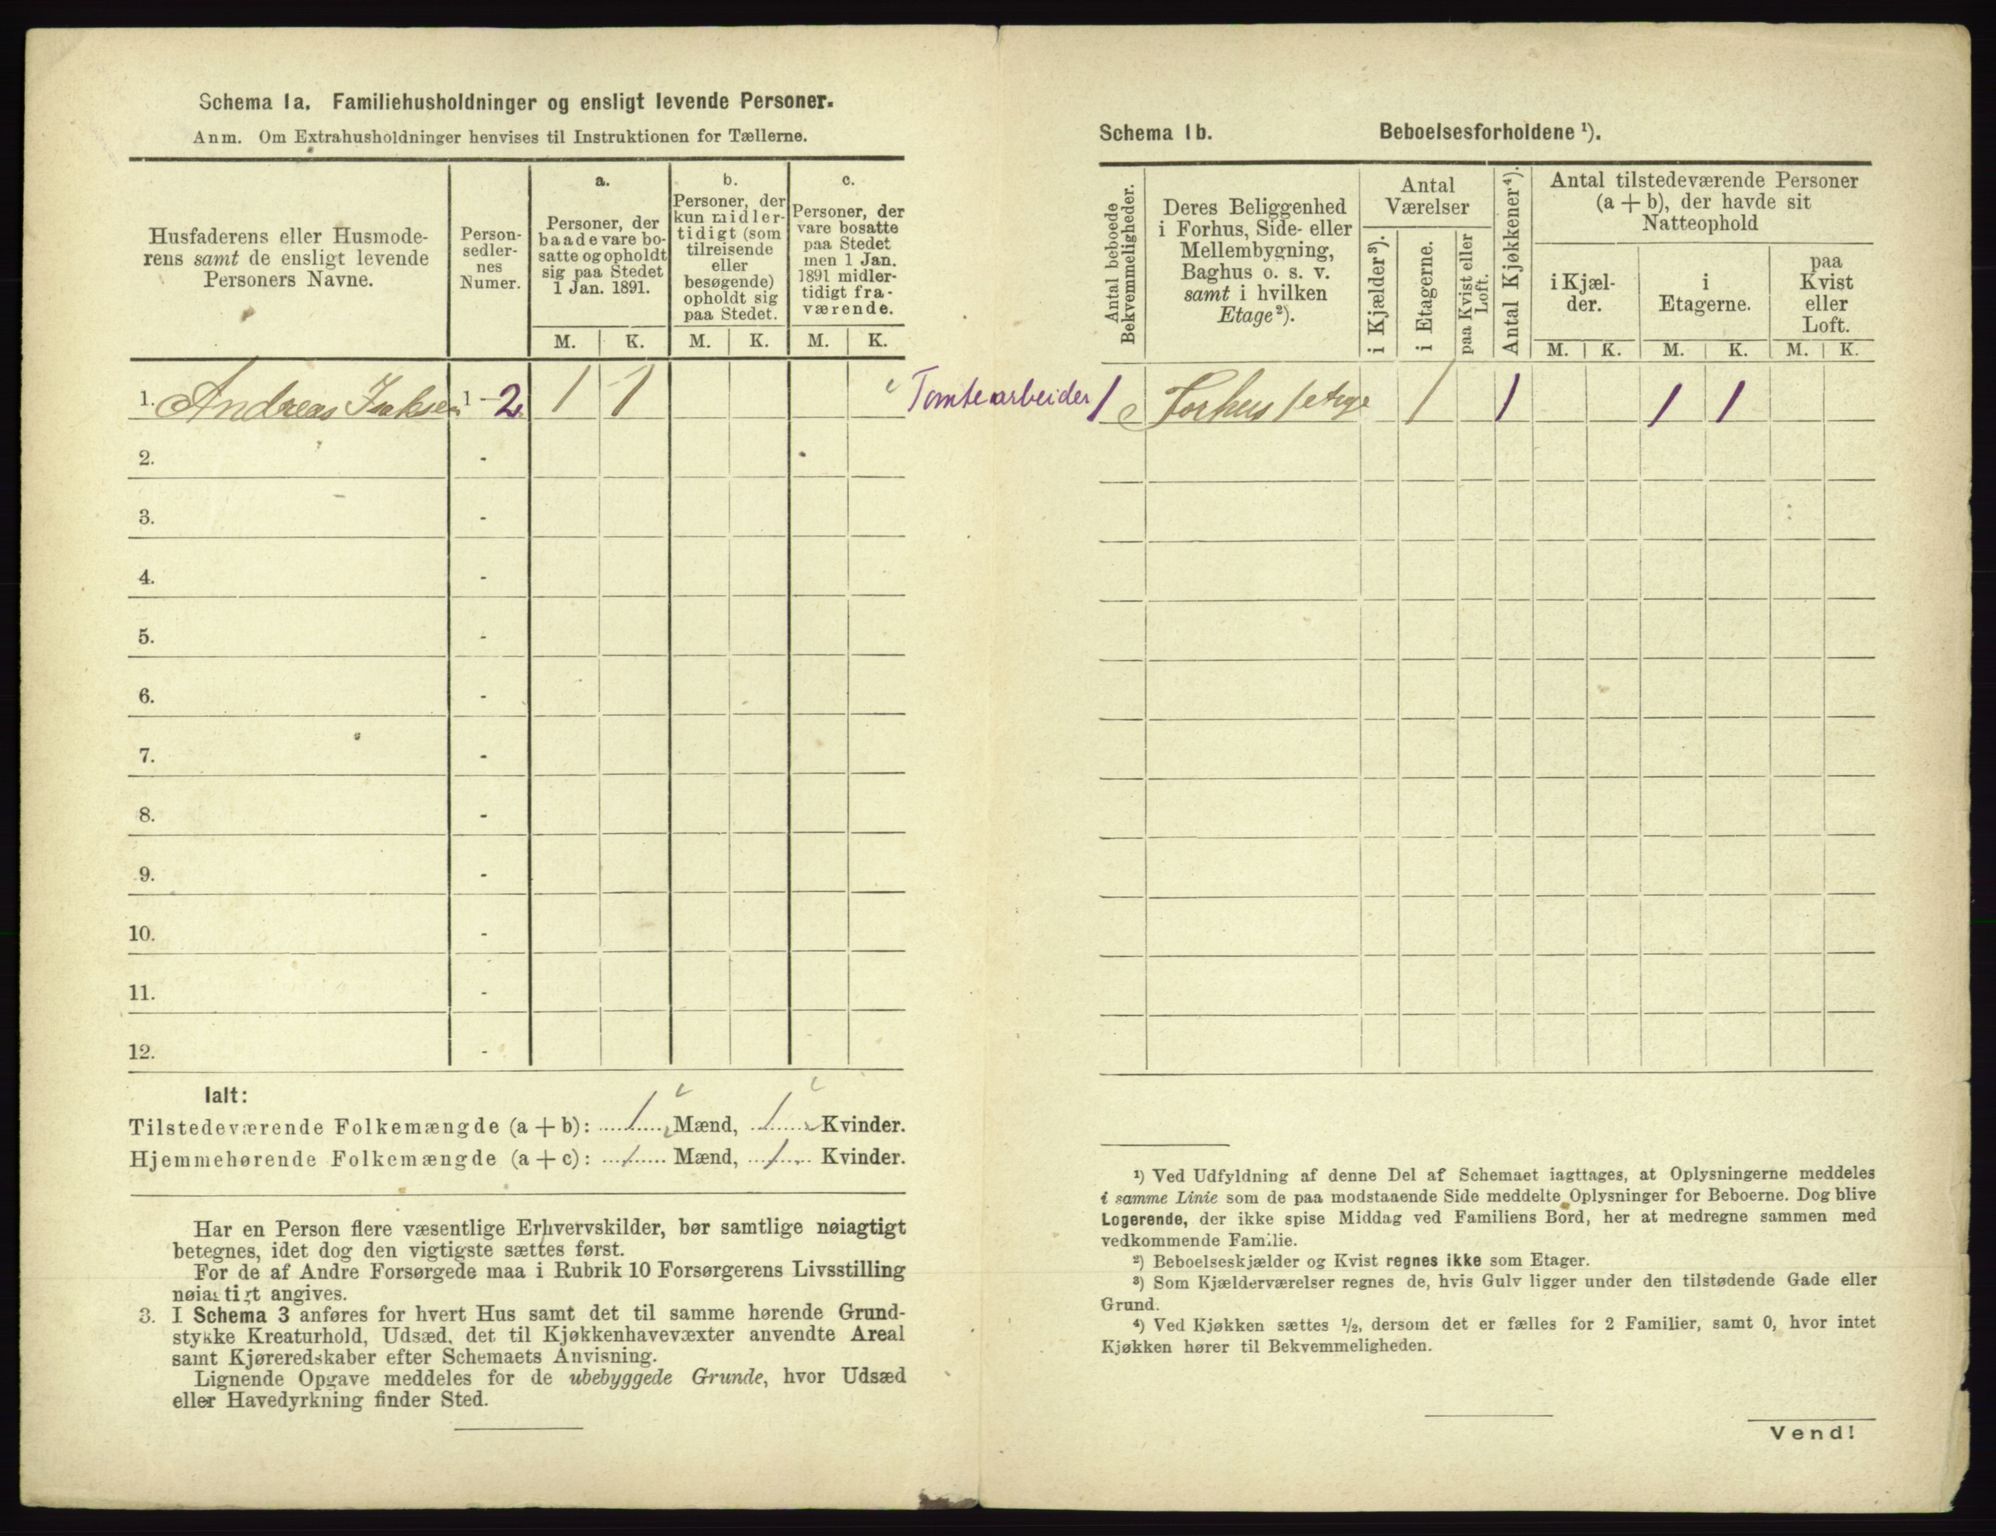 Schema 1a. Familiehusholdninger og ensligt levende Personer.
Anm. Om Extrahusholdninger henvises til Instruktionen for Tællerne.
Husfaderens eller Husmode-
rens samt de ensligt levende
Personers Navne.
Person-
sedler-
nes
Numer.
a.
Personer, der
baade vare bo-
satte og opholdt
sig paa Stedet
1 Jan. 1891.
b.
Personer, der
kun midler-
tidigt (som
tilreisende
eller
besøgende)
opholdt sig
paa Stedet.
c.
Personer, der
vare bosatte
paa Stedet
men 1 Jan.
1891 midler-
tidigt fra-
værende.
M. K. M. K. M. K.
1. Andreas Isaksen 1 - 2 1 1 Tomtearbeider
2. -
3. -
4. -
5. -
6. -
7. -
8. -
9. -
10. -
11. -
12. -
Ialt:
Tilstedeværende Folkemængde (a + b): 1 Mænd, 1 Kvinder.
Hjemmehørende Folkemængde (a + c): 1 Mænd, 1 Kvinder.
Har en Person flere væsentlige Erhvervskilder, bør samtlige nøiagtigt
betegnes, idet dog den vigtigste sættes først.
For de af Andre Forsørgede maa i Rubrik 10 Forsørgerens Livsstilling
nøiagtigt angives.
3. I Schema 3 anføres for hvert Hus samt det til samme hørende Grund-
stykke Kreaturhold, Udsæd, det til Kjøkkenhavevæxter anvendte Areal
samt Kjøreredskaber efter Schemaets Anvisning.
Lignende Opgave meddeles for de ubebyggede Grunde, hvor Udsæd
eller Havedyrkning finder Sted.
Schema 1b. Beboelsesforholdene ¹).
Antal beboede
Bekvemmeligheder.
Deres Beliggenhed
i Forhus, Side- eller
Mellembygning,
Baghus o. s. v.
samt i hvilken
Etage²).
Antal
Værelser
i Kjælder³).
i Etagerne.
paa Kvist eller
Loft.
Antal Kjøkkener⁴).
Antal tilstedeværende Personer
(a + b), der havde sit
Natteophold
i Kjæl-
der.
i
Etagerne.
paa
Kvist
eller
Loft.
M. K. M. K. M. K.
1 Forhus 1 etage 1 1 1 1
¹) Ved Udfyldning af denne Del af Schemaet iagttages, at Oplysningerne meddeles
i samme Linie som de paa modstaaende Side meddelte Oplysninger for Beboerne. Dog blive
Logerende, der ikke spise Middag ved Familiens Bord, her at medregne sammen med
vedkommende Familie.
²) Beboelseskjælder og Kvist regnes ikke som Etager.
³) Som Kjælderværelser regnes de, hvis Gulv ligger under den tilstødende Gade eller
Grund.
⁴) Ved Kjøkken sættes ½, dersom det er fælles for 2 Familier, samt 0, hvor intet
Kjøkken hører til Bekvemmeligheden.
Vend!